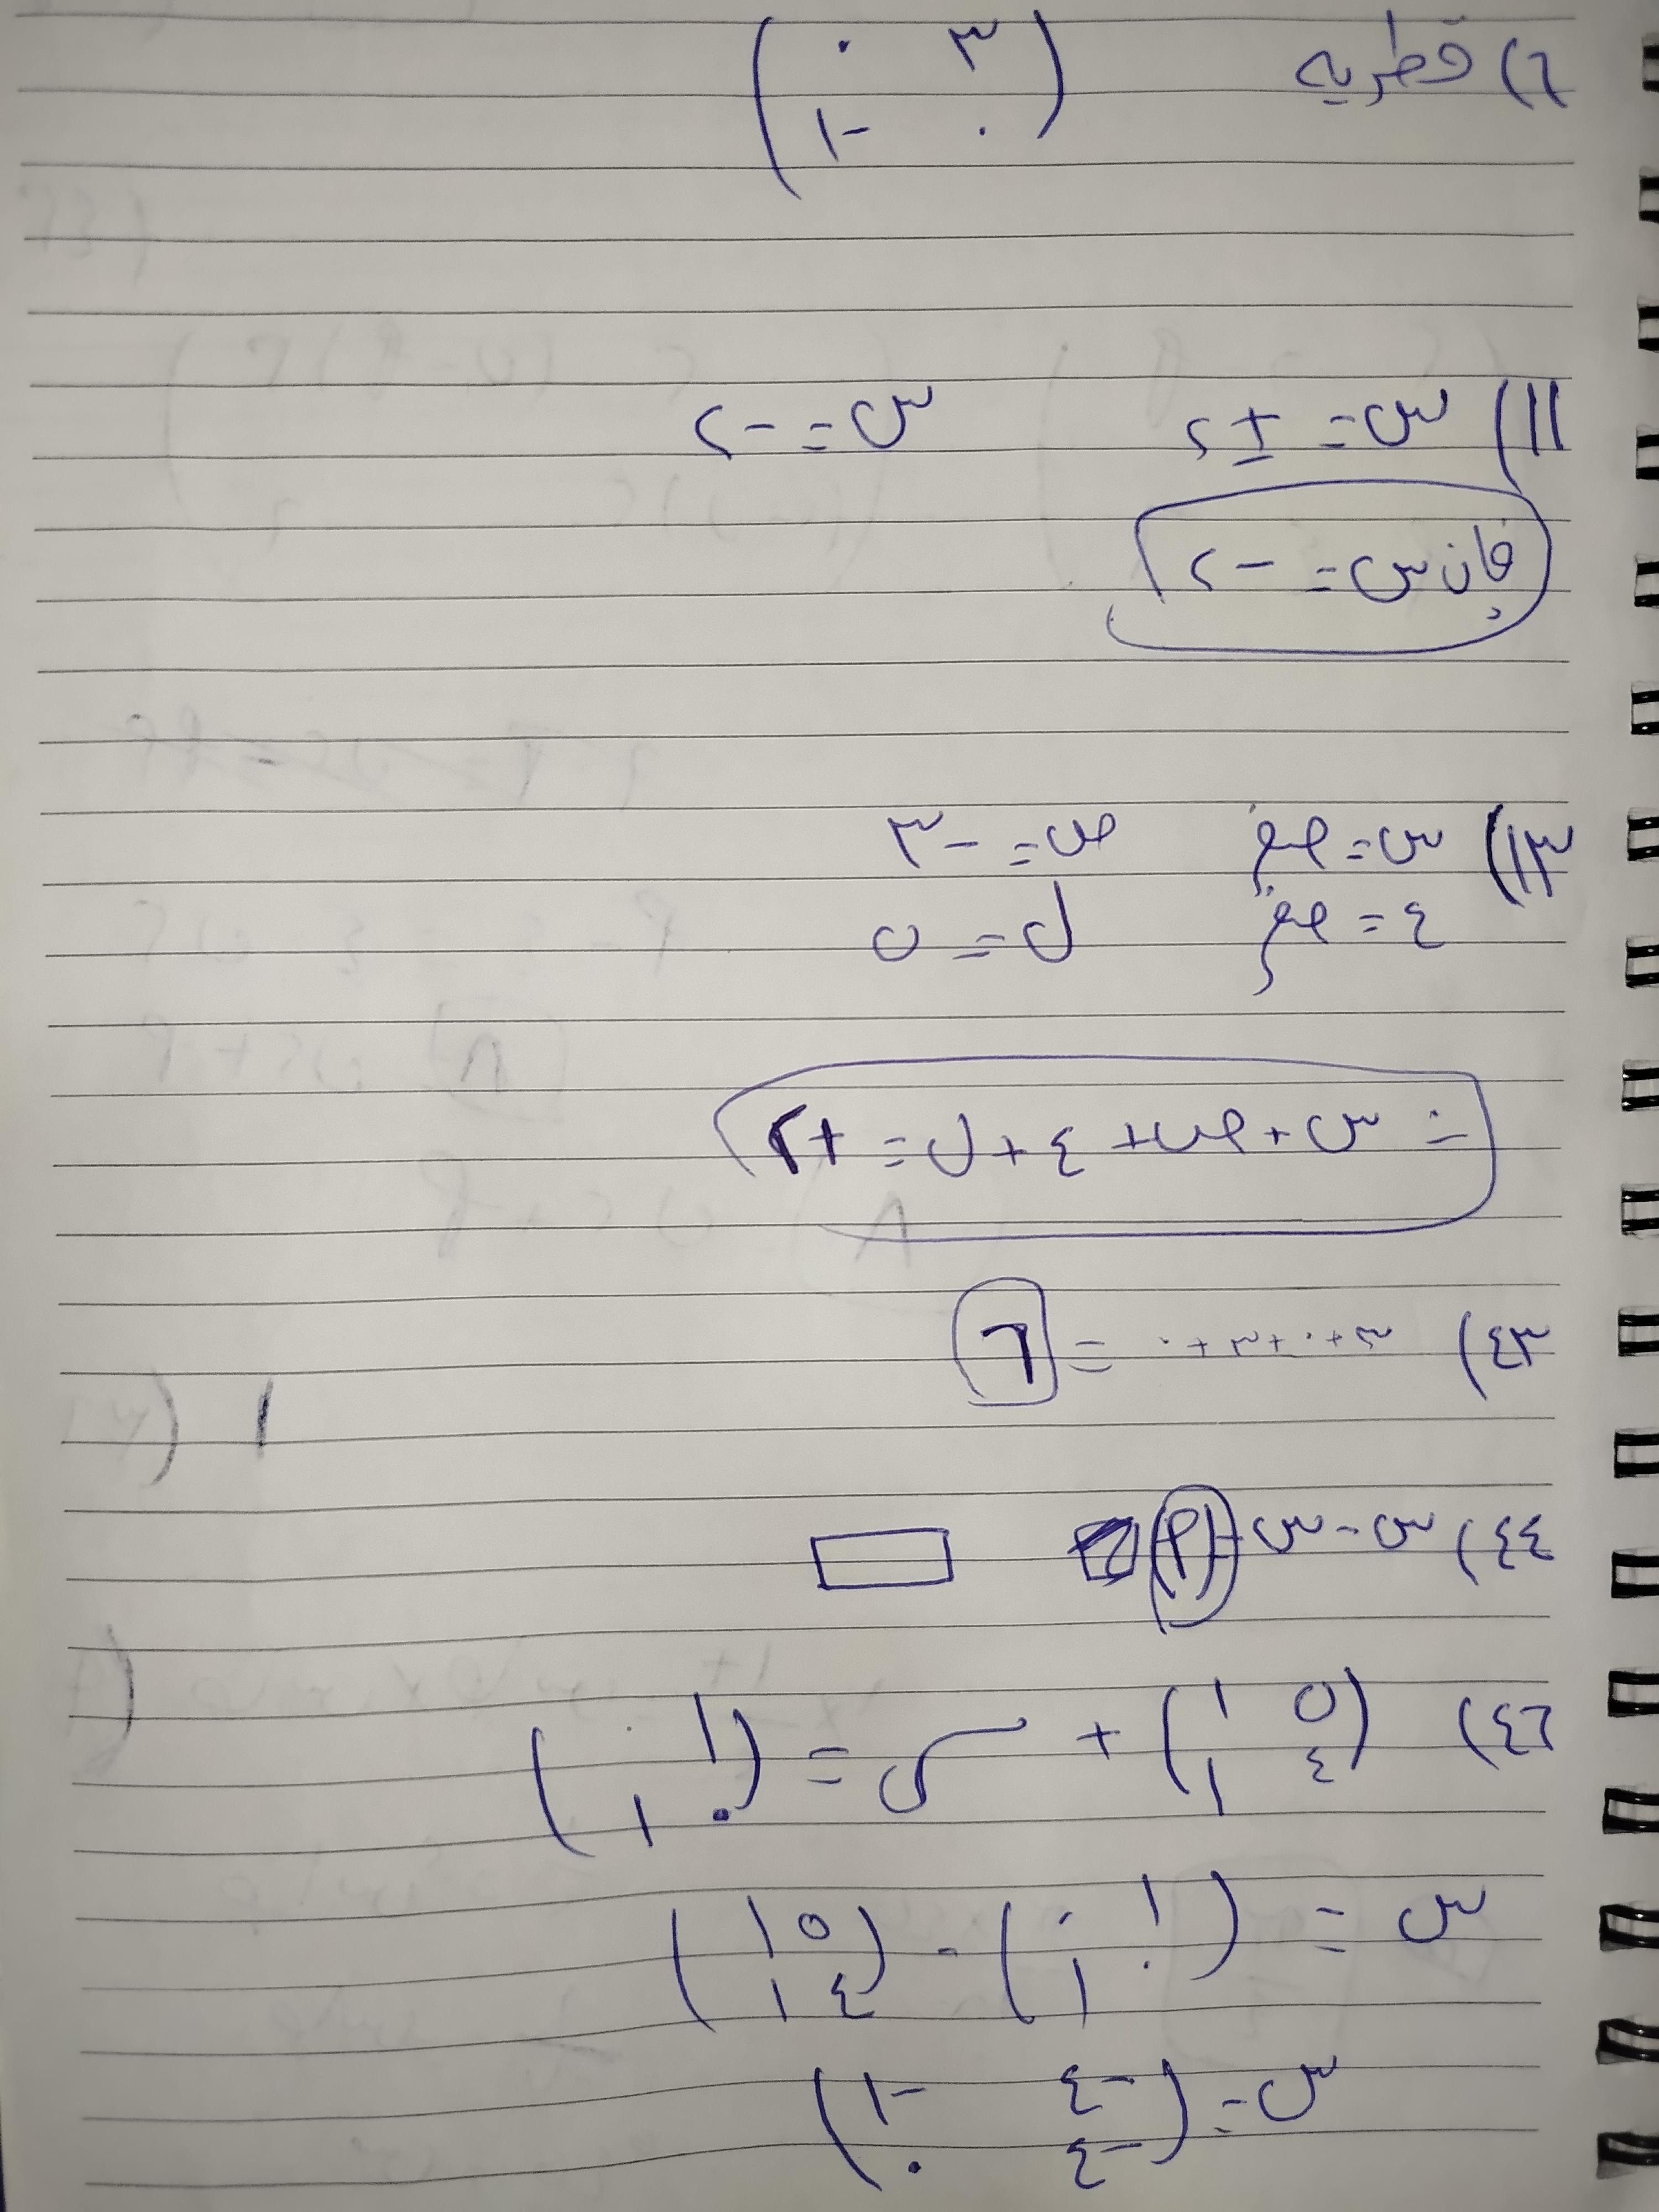 ٦) قطريه (٣ ٠
٠ -١)
١١) س = ±٢ س = -٢
فإن س = -٢
١٣) س = صفر ص = -٣
ع = صفر ل = ٥
= س + ص + ع + ل = +٢
٤٣) ٣+٠+٣+٠ = ٦
٤٤) س - س
٤٦) (٥ ١
٤ ١) + س = (١ ٠
٠ ١)
س = (١ ٠
٠ ١) - (٥ ١
٤ ١)
س = (-٤ -١
-٤ ٠)